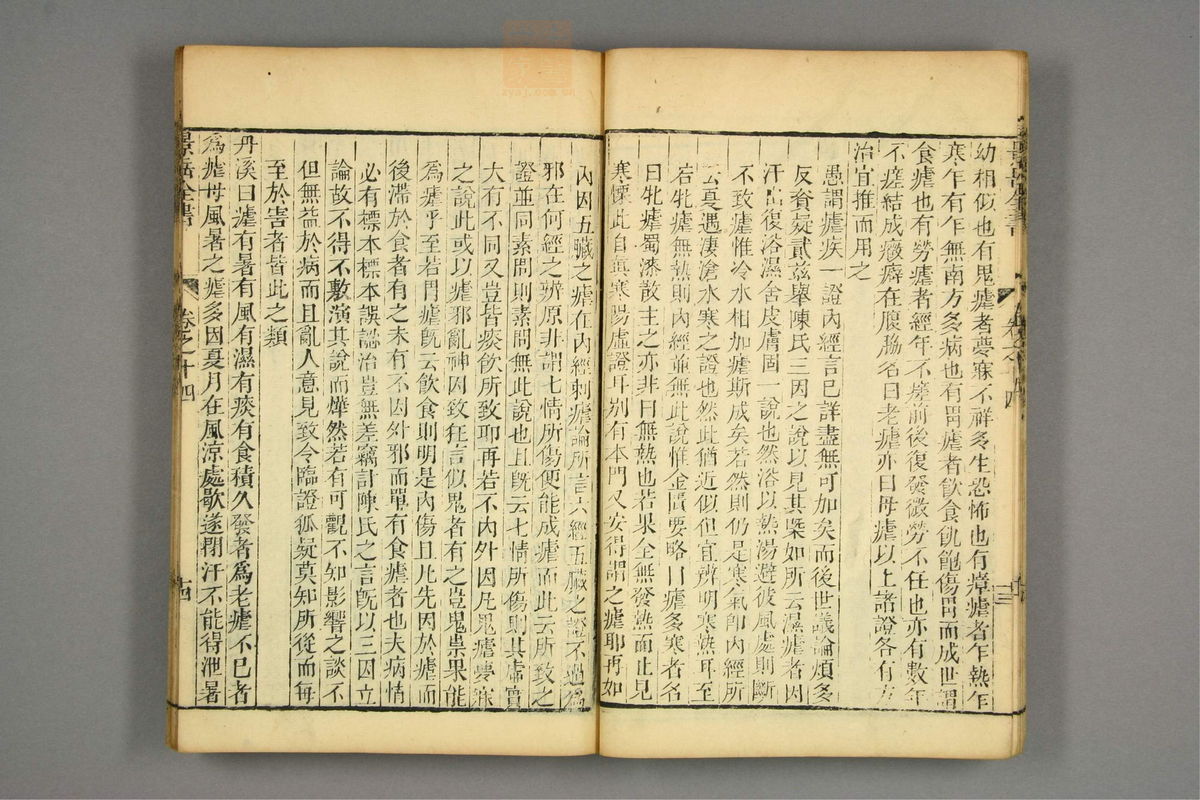 景岳全書 卷之十四 十三
幼相似也有鬼瘧者夢寐不祥多生恐怖也有瘴瘧者乍熱乍
寒乍有乍無南方多病也有胃瘧者飲食飢飽傷胃而成世謂
食瘧也有勞瘧者經年不瘥前後復發微勞不任也亦有數年
不瘥結成癥癖在腹脇名曰老瘧亦曰母瘧以上諸證各有方
治宜推而用之
愚謂瘧疾一證內經言已詳盡無可加矣而後世議論煩多
反資疑貳茲舉陳氏三因之說以見其槩如所云濕瘧者因
汗出復浴濕舍皮膚固一說也然浴以熱湯避彼風處則斷
不致瘧惟冷水相加瘧斯成矣若然則仍是寒氣卽內經所
云夏遇凄滄水寒之證也然此猶近似但宜辨明寒熱耳至
若牝瘧無熱則內經並無此說惟金匱要略曰瘧多寒者名
曰牝瘧蜀漆散主之亦非曰無熱也若果全無發熱而止見
寒慄此自眞寒陽虛證耳别有本門又安得謂之瘧耶再如
內因五臟之瘧在內經刺瘧論所言六經五臟之證不過爲
邪在何經之辨原非謂七情所傷便能成瘧而此云所致之
證並同素問則素問無此說也且旣云七情所傷則其虛實
大有不同又豈皆痰飲所致耶再若不內外因凡鬼瘧夢寐
之說此或以瘧邪亂神因致狂言似鬼者有之豈鬼祟果能
爲瘧乎至若胃瘧旣云飲食則明是內傷且凡先因於瘧而
後滯於食者有之未有不因外邪而單有食瘧者也夫病情
必有標本標本誤認治豈無差竊計陳氏之言旣以三因立
論故不得不敷演其說而燁然若有可觀不知影響之談不
但無益於病而且亂人意見致令臨證狐疑莫知所從而每
至於害者皆此之類
丹溪曰瘧有暑有風有濕有痰有食積久發者爲老瘧不已者
爲瘧母風暑之瘧多因夏月在風涼處歇遂閉汗不能得泄暑
景岳全書 卷之十四 十四